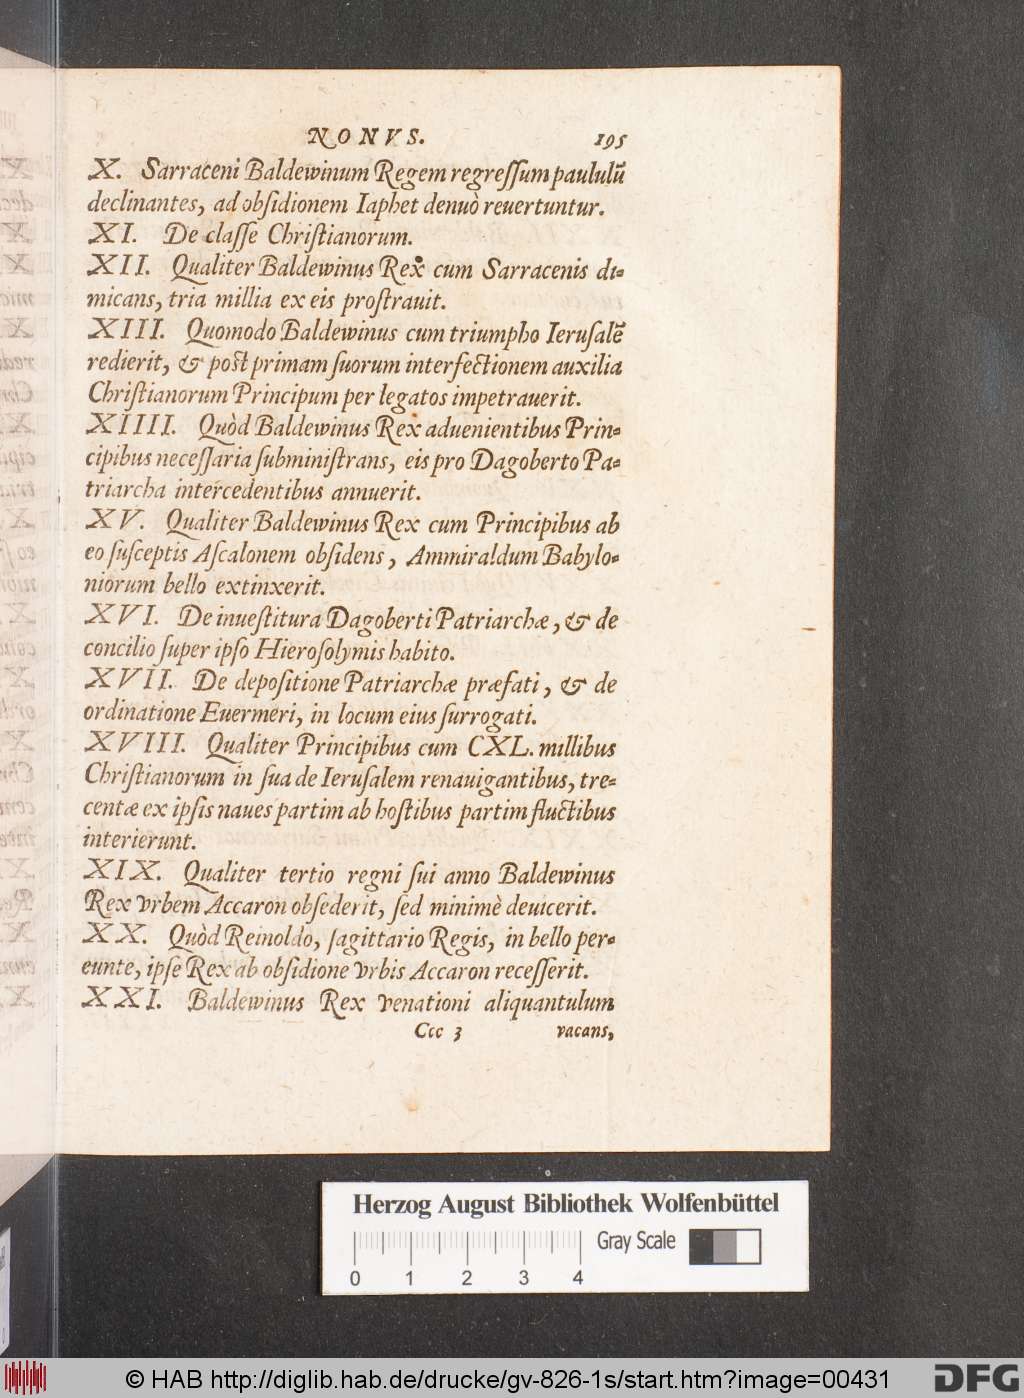 NONVS. 195
X. Sarraceni Baldewinum Regem regreſſum paululū
declinantes, ad obſidionem Iaphet denuò reuertuntur.
XI. De claſſe Chriſtianorum.
XII. Qualiter Baldewinus Rex cum Sarracenis di-
micans, tria millia ex eis proſtrauit.
XIII. Quomodo Baldewinus cum triumpho Ieruſalē
redierit, & poſt primam ſuorum interfectionem auxilia
Chriſtianorum Principum per legatos impetrauerit.
XIIII. Quòd Baldewinus Rex aduenientibus Prin-
cipibus neceſſaria ſubminiſtrans, eis pro Dagoberto Pa-
triarcha intercedentibus annuerit.
XV. Qualiter Baldewinus Rex cum Principibus ab
eo ſuſceptis Aſcalonem obſidens, Ammiraldum Babylo-
niorum bello extinxerit.
XVI. De inueſtitura Dagoberti Patriarchæ, & de
concilio ſuper ipſo Hieroſolymis habito.
XVII. De depoſitione Patriarchæ præfati, & de
ordinatione Euermeri, in locum eius ſurrogati.
XVIII. Qualiter Principibus cum CXL. millibus
Chriſtianorum in ſua de Ieruſalem renauigantibus, tre-
centæ ex ipſis naues partim ab hoſtibus partim fluctibus
interierunt.
XIX. Qualiter tertio regni ſui anno Baldewinus
Rex vrbem Accaron obſederit, ſed minimè deuicerit.
XX. Quòd Reinoldo, ſagittario Regis, in bello per-
eunte, ipſe Rex ab obſidione vrbis Accaron receſſerit.
XXI. Baldewinus Rex venationi aliquantulum
Ccc 3 vacans,
Herzog August Bibliothek Wolfenbüttel
Gray Scale
0 1 2 3 4
© HAB http://diglib.hab.de/drucke/gv-826-1s/start.htm?image=00431
DFG